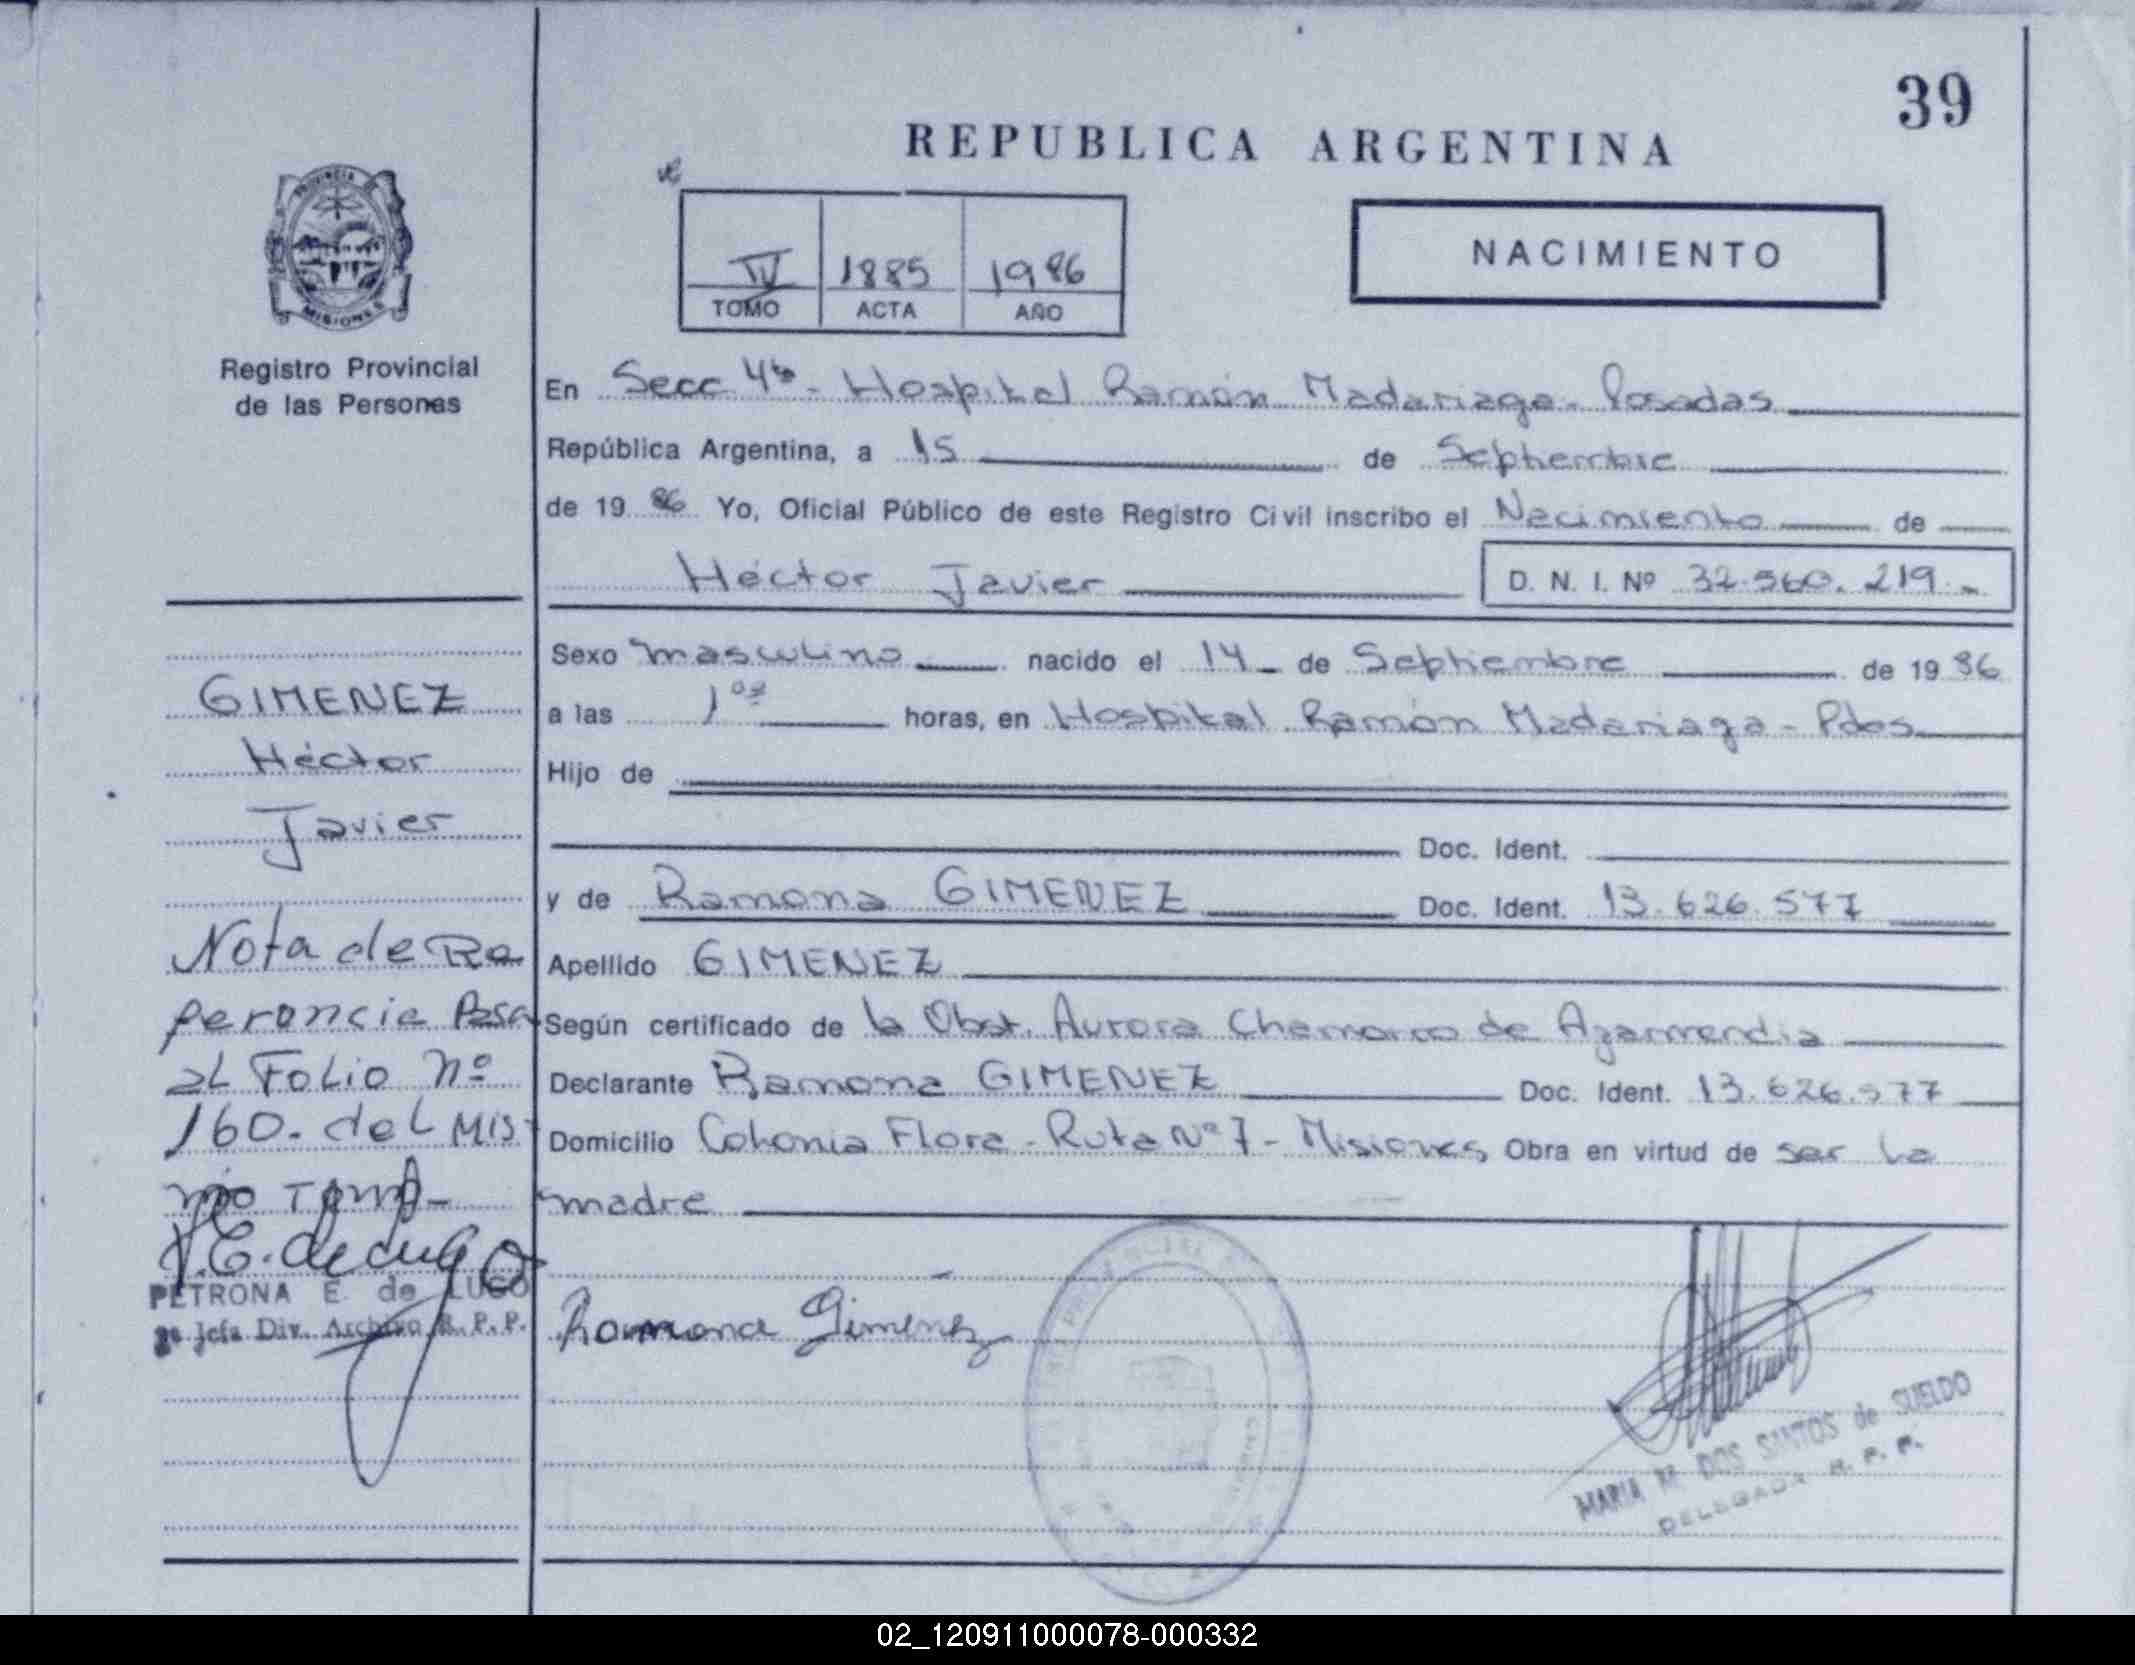 39
REPUBLICA ARGENTINA
PROVINCIA DE
MISIONES
Registro Provincial
de las Personas
IV 1885 1986
TOMO ACTA AÑO
NACIMIENTO
En Secc 4ta - Hospital Ramón Madariaga - Posadas
República Argentina, a 15 de Septiembre
de 19 86 Yo, Oficial Público de este Registro Civil inscribo el Nacimiento de
Héctor Javier D. N. I. Nº 32.560.219.-
Sexo masculino nacido el 14 - de Septiembre de 19 86
a las 1 horas, en Hospital Ramón Madariaga - Pdas
Hijo de
Doc. Ident.
y de Ramona GIMENEZ Doc. Ident. 13.626.577
Apellido GIMENEZ
Según certificado de la Obst. Aurora Chamorro de Azarmendia
Declarante Ramona GIMENEZ Doc. Ident. 13.626.577
Domicilio Colonia Flora - Ruta Nº 7 - Misiones Obra en virtud de ser la
madre
Ramona Gimenez
MARIA DOS SANTOS de SUELDO
DELEGADA R. P. P.
GIMENEZ
Héctor
Javier
Nota de Re
ferencia Pasa
al Folio nº
160. del Mis
mo Tomo-
P.E. de Lugo
PETRONA E. de LUGO
2º Jefa Div. Archivo R. P. P.
02_120911000078-000332